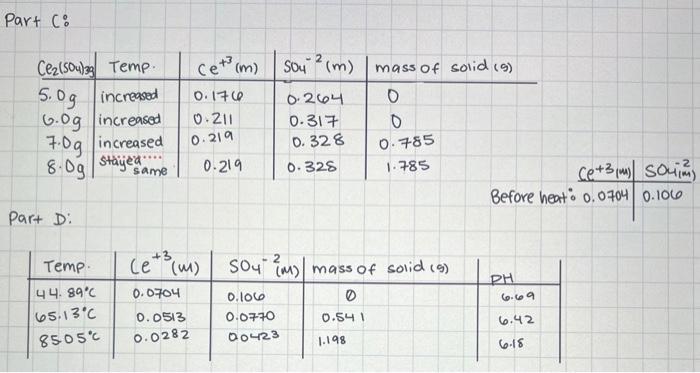 Part C:
Ce2(SO4)3g Temp. Ce+3 (m) SO4-2 (m) mass of solid (g)
5.0g increased 0.176 0.264 0
6.0g increased 0.211 0.317 0
7.0g increased 0.219 0.328 0.785
8.0g stayed same 0.219 0.328 1.785
Ce+3 (m) SO4-2 (m)
Before heat: 0.0704 0.106
Part D:
Temp. Ce+3 (M) SO4-2 (M) mass of solid (g) PH
44.89°C 0.0704 0.106 0 6.69
65.13°C 0.0513 0.0770 0.541 6.42
85.05°C 0.0282 0.0423 1.198 6.18